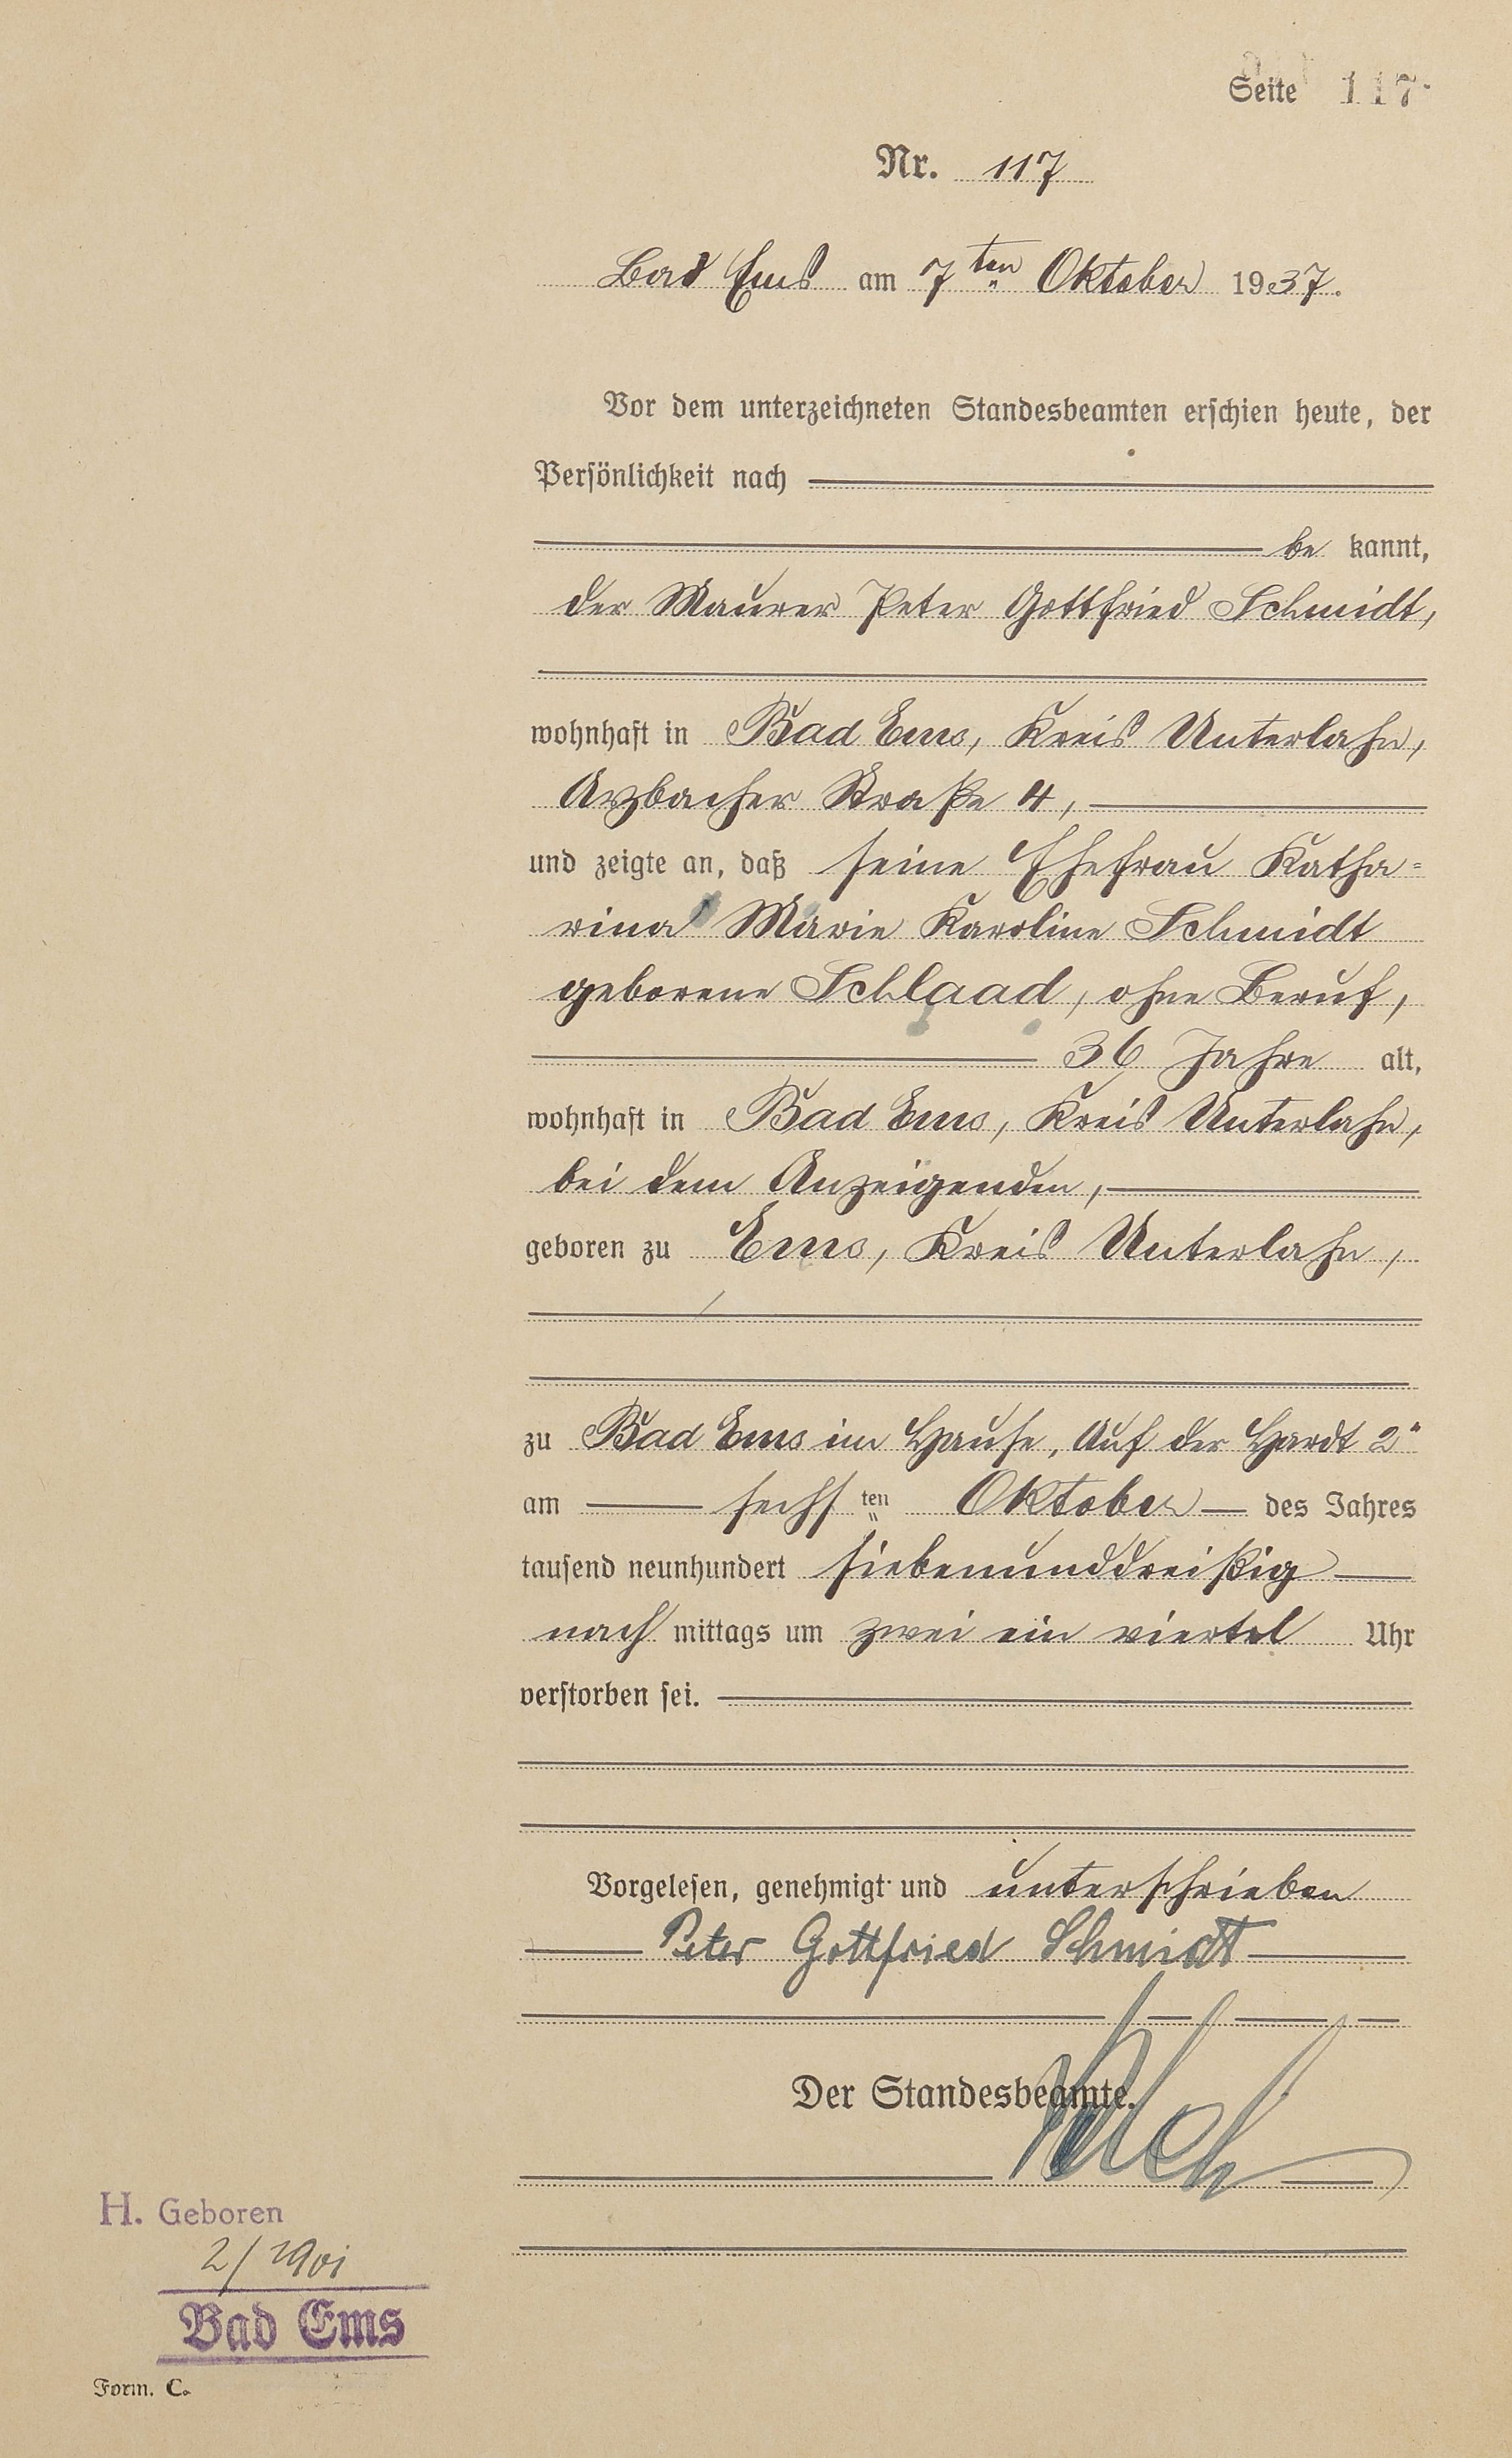 Seite 117
Nr. 117
Bad Ems am 7ten Oktober 1937.
Vor dem unterzeichneten Standesbeamten erschien heute, der
Persönlichkeit nach
be kannt,
der Maurer Peter Gottfried Schmidt,
wohnhaft in Bad Ems, Kreis Unterlahn,
Arzbacher Straße 4,
und zeigte an, daß seine Ehefrau Katha=
rina Marie Karoline Schmidt
geborene Schlaad, ohne Beruf,
36 Jahre alt,
wohnhaft in Bad Ems, Kreis Unterlahn,
bei dem Anzeigenden,
geboren zu Ems, Kreis Unterlahn,
zu Bad Ems im Hause, Auf der Hardt 2"
am sechsten Oktober des Jahres
tausend neunhundert siebenunddreißig
nach mittags um zwei ein viertel Uhr
verstorben sei.
Vorgelesen, genehmigt und unterschrieben
Peter Gottfried Schmidt
Der Standesbeamte.
H. Geboren
2/1901
Bad Ems
Form. C.